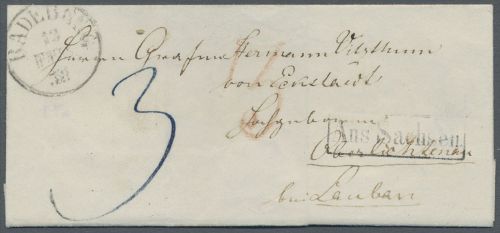 RADEBERG
13
3
Herrn Grafen Hermann Vitzthum
von Eckstädt
Hochgeboren
Aus Sachsen
Oberlichtenau
bei Lauban